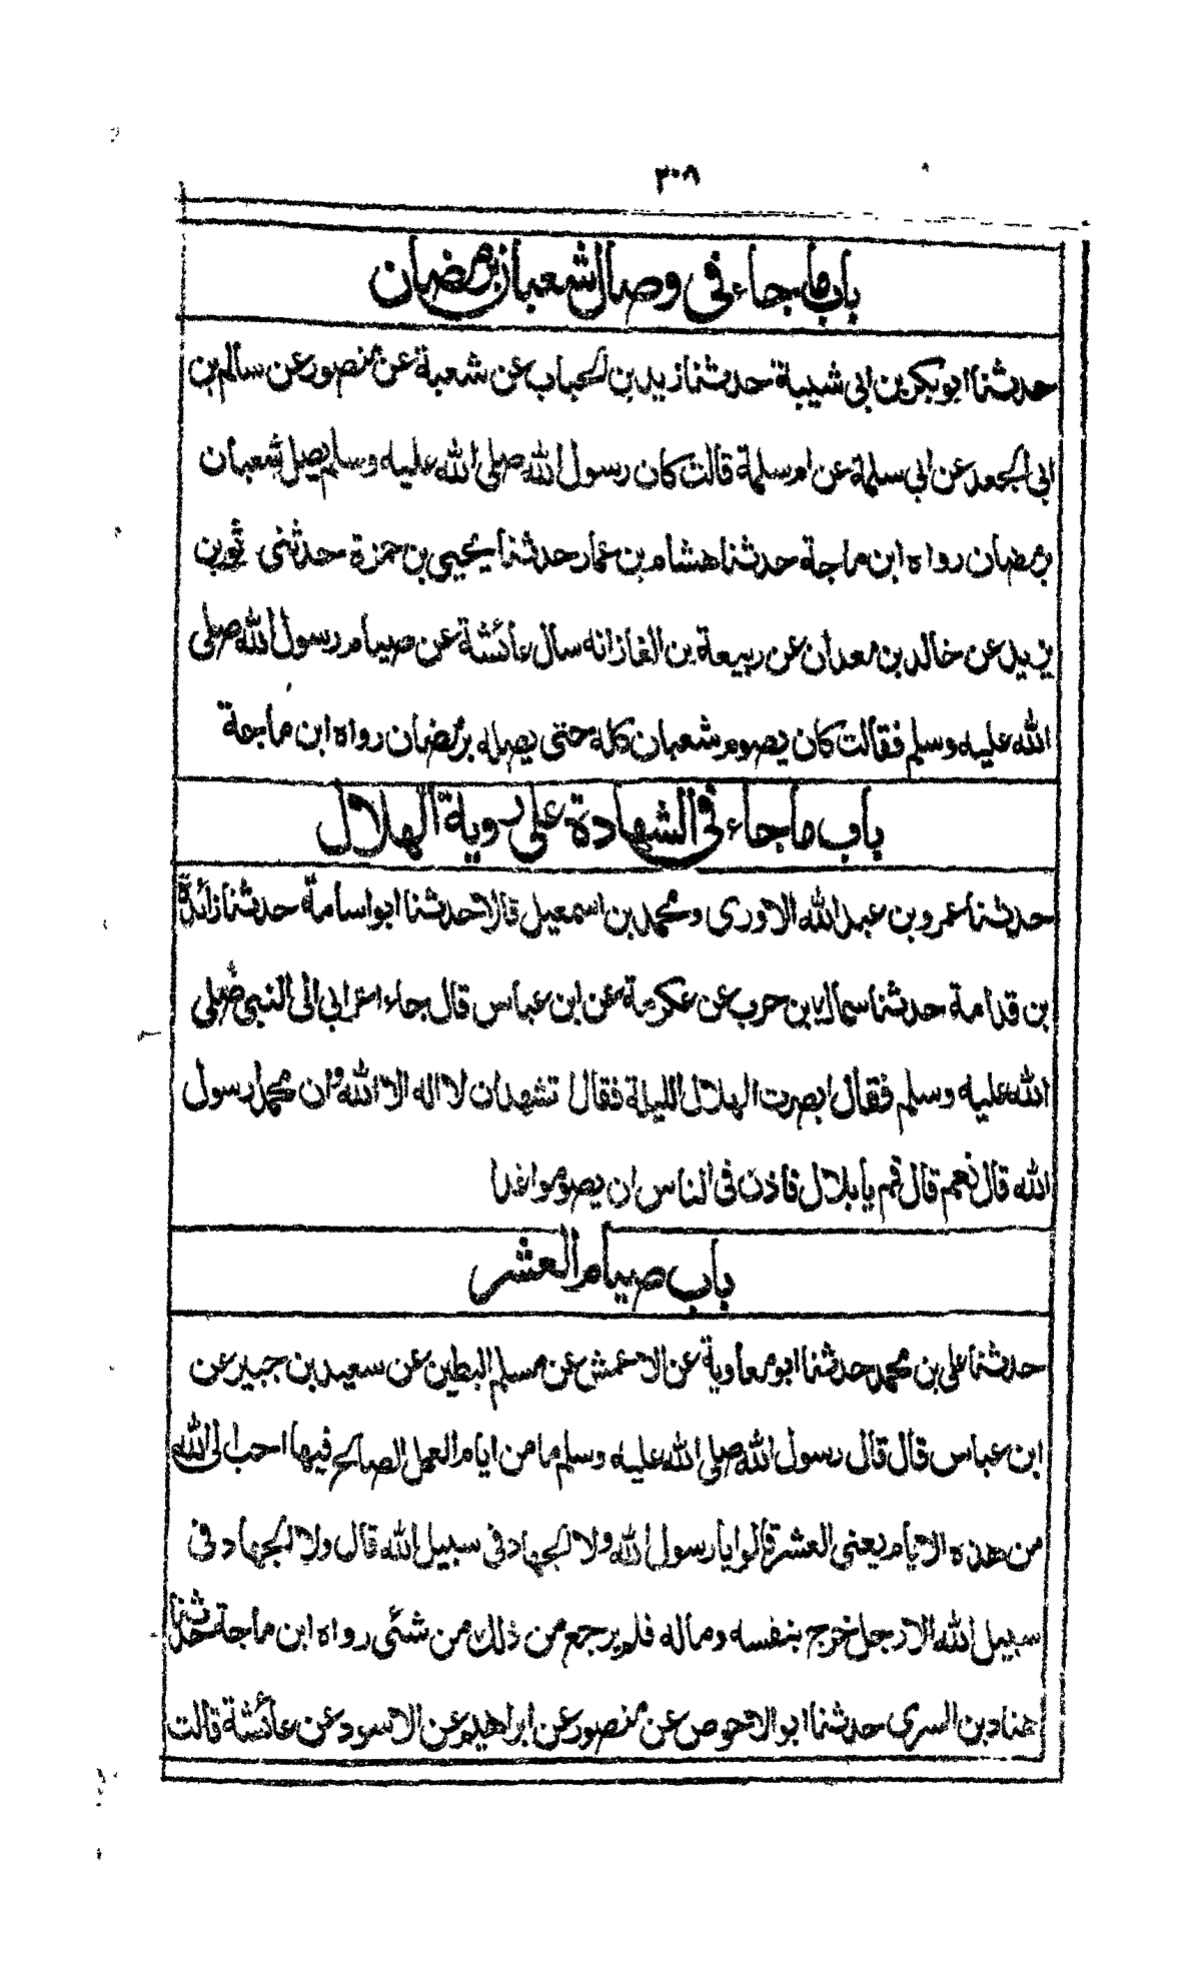 ٣٠٨
باب ما جاء فى وصال شعبان برمضان
حدثنا ابوبكر بن ابى شيبة حدثنا زيد بن الحباب عن شعبة عن منصور عن سالم بن
ابى الجعد عن ابى سلمة عن ام سلمة قالت كان رسول الله صلى الله عليه وسلم يصل شعبان
برمضان رواه ابن ماجة حدثنا هشام بن عمار حدثنا يحيى بن حمزة حدثنى ثور بن
يزيد عن خالد بن معدان عن ربيعة بن الغاز انه سأل عائشة عن صيام رسول الله صلى
الله عليه وسلم فقالت كان يصوم شعبان كله حتى يصله برمضان رواه ابن ماجة
باب ما جاء فى الشهادة على روية الهلال
حدثنا عمرو بن عبد الله الاورى ومحمد بن اسمعيل قالا حدثنا ابو اسامة حدثنا زائدة
بن قدامة حدثنا سماك بن حرب عن عكرمة عن ابن عباس قال جاء اعرابى الى النبى صلى
الله عليه وسلم فقال ابصرت الهلال الليلة فقال تشهد ان لا اله الا الله وان محمدا رسول
الله قال نعم قال قم يا بلال فاذن فى الناس ان يصوموا غدا
باب صيام العشر
حدثنا على بن محمد حدثنا ابو معاوية عن الاعمش عن مسلم البطين عن سعيد بن جبير عن
ابن عباس قال قال رسول الله صلى الله عليه وسلم ما من ايام العمل الصالح فيها احب الى الله
من هذه الايام يعنى العشر قالوا يا رسول الله ولا الجهاد فى سبيل الله قال ولا الجهاد فى
سبيل الله الا رجل خرج بنفسه وماله فلم يرجع من ذلك من شئى رواه ابن ماجة حدثنا
هناد بن السرى حدثنا ابو الاحوص عن منصور عن ابراهيم عن الاسود عن عائشة قالت